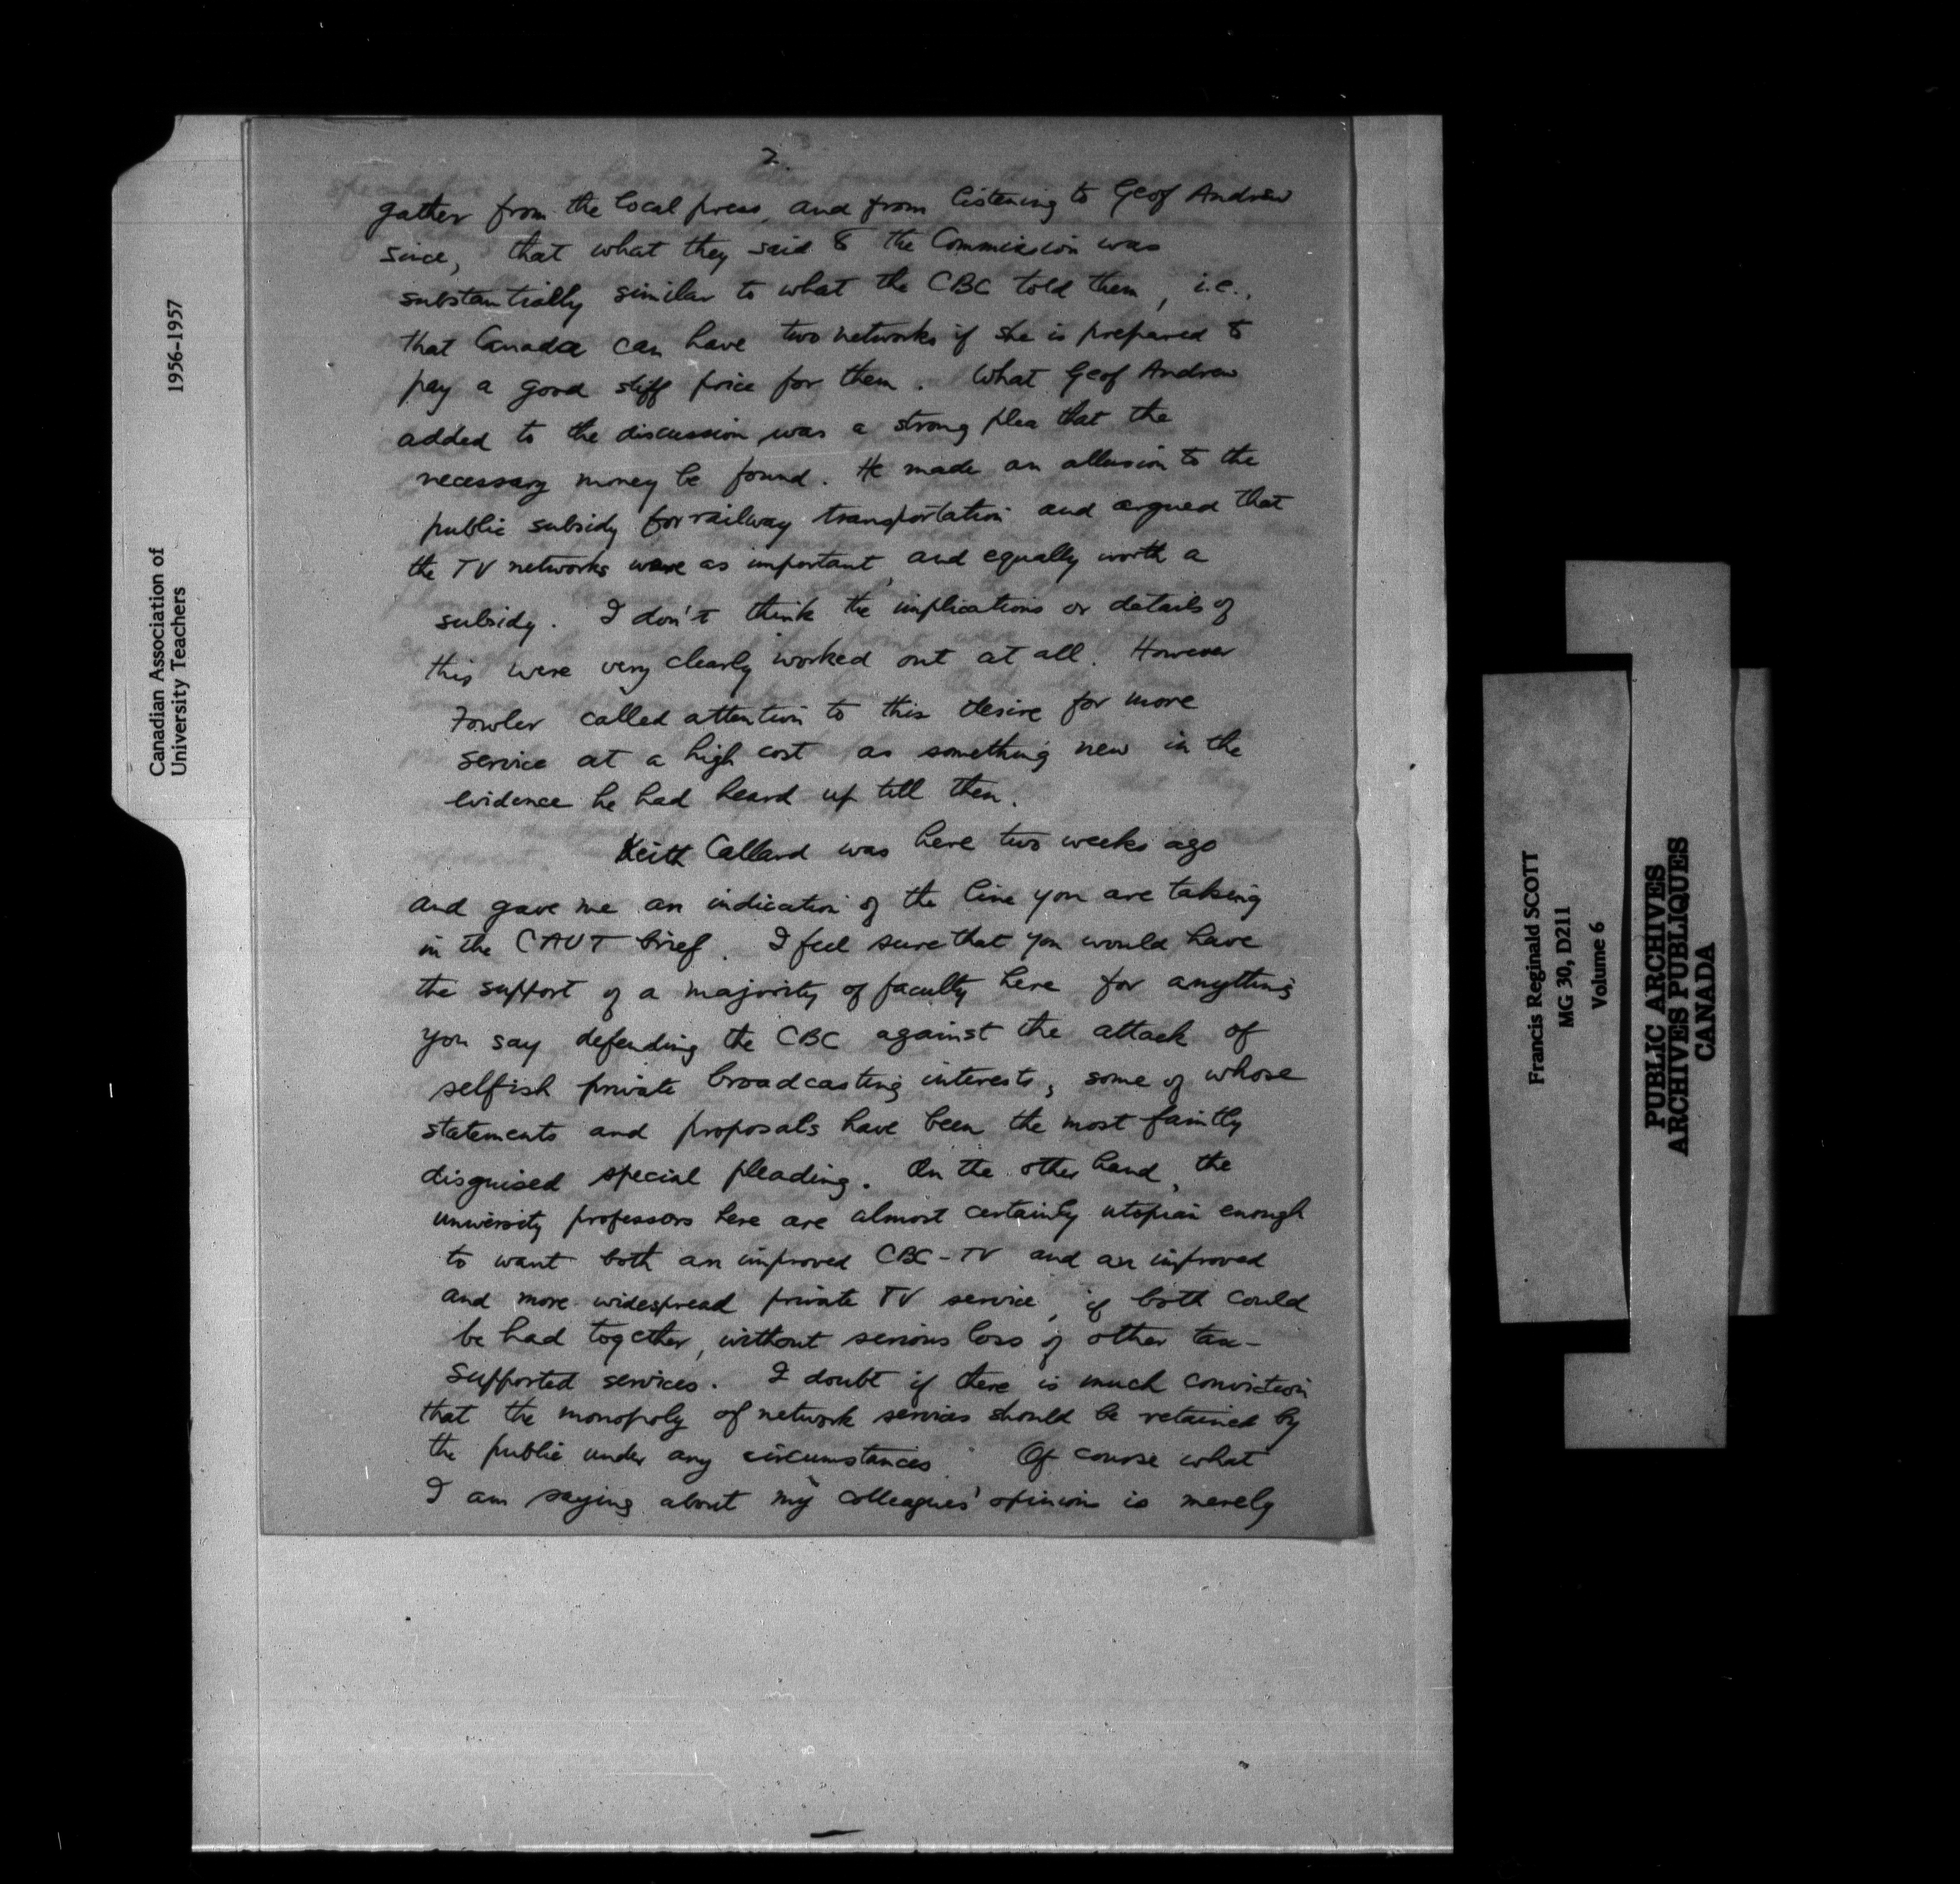 Canadian Association of
University Teachers
1956-1957
2
gather from the local press, and from listening to Geof Andrew
since, that what they said to the Commission was
substantially similar to what the CBC told them, i.e.,
that Canada can have two networks if she is prepared to
pay a good stiff price for them. What Geof Andrew
added to the discussion was a strong plea that the
necessary money be found. He made an allusion to the
public subsidy for railway transportation and argued that
the TV networks were as important, and equally worth a
subsidy. I don't think the implications or details of
this were very clearly worked out at all. However
Fowler called attention to this desire for more
service at a high cost as something new in the
evidence he had heard up till then.
Keith Callard was here two weeks ago
and gave me an indication of the line you are taking
in the CAUT brief. I feel sure that you would have
the support of a majority of faculty here for anything
you say defending the CBC against the attack of
selfish private broadcasting interests, some of whose
statements and proposals have been the most faintly
disguised special pleading. On the other hand, the
university professors here are almost certainly utopian enough
to want both an improved CBC-TV and an improved
and more widespread private TV service, if both could
be had together, without serious loss of other tax-
supported services. I doubt if there is much conviction
that the monopoly of network services should be retained by
the public under any circumstances. Of course what
I am saying about my colleagues' opinions is merely
Francis Reginald SCOTT
MG 30, D211
Volume 6
PUBLIC ARCHIVES
ARCHIVES PUBLIQUES
CANADA